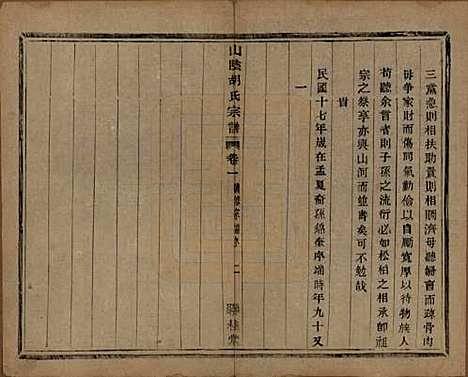 三黨急則相扶助貴則相賙濟毋聽婦言而疎骨肉
毋爭家財而傷同氣勤儉以自勵寬厚以待物族人
苟聽余言者則子孫之流衍必如松柏之相承卽祖
宗之祭亭亦與山河而並壽矣可不勉哉
旹
民國十七年歲在孟夏裔孫錦奎序撝時年九十又
一
山陰胡氏宗譜 卷一 二 聯桂堂